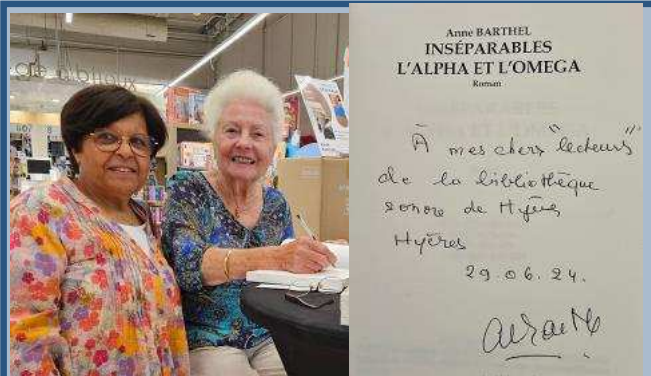 Anne BARTHEL
INSÉPARABLES
L'ALPHA ET L'OMEGA
Roman
À mes chers "lecteurs"
de la bibliothèque
sonore de Hyères
Hyères
29.06.24.